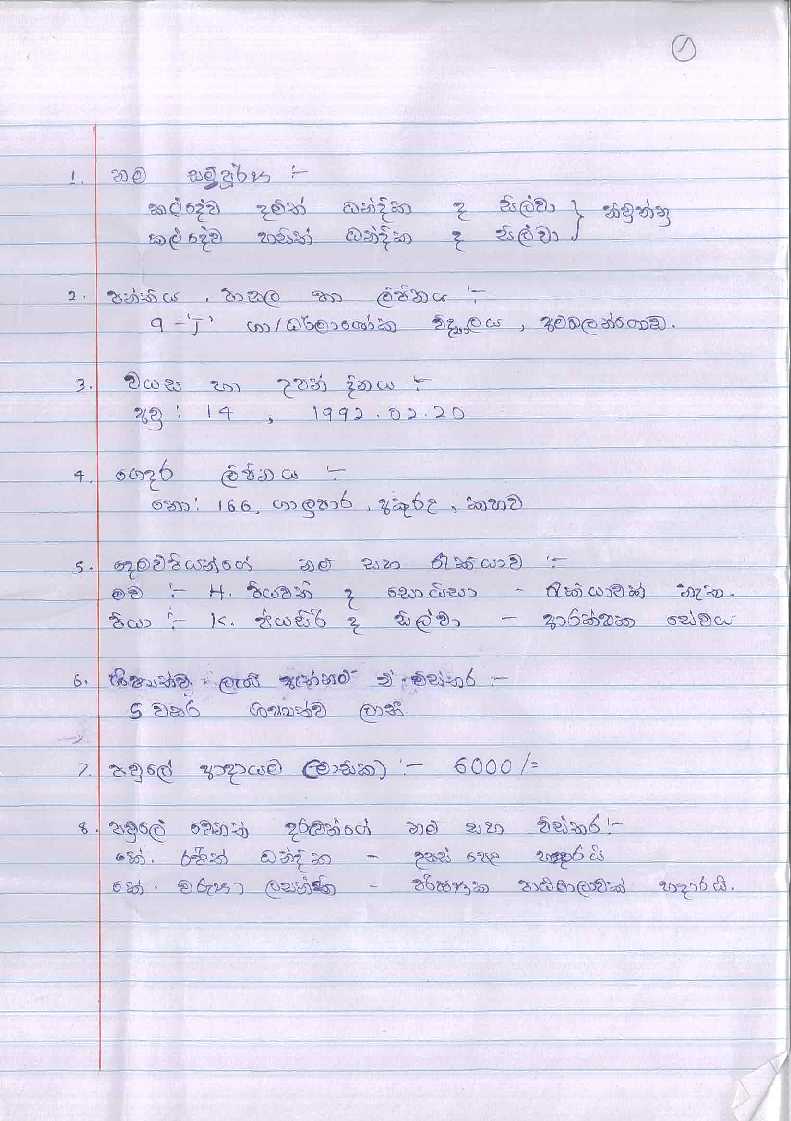 1
1. නම සම්පූර්ණ :-
කල්දේව දමිත් බන්දික ද සිල්වා } නිවුන්නු
කල්දේව හසිත් බන්දික ද සිල්වා
2. පන්තිය, පාසල හා ලිපිනය :-
9 - 'J' ගා/ධර්මාශෝක විද්‍යාලය, අම්බලන්ගොඩ.
3. වයස හා උපන් දිනය :-
අවු : 14 , 1992.02.20
4. ගෙදර ලිපිනය :-
නො: 166, ගාලුපාර, අකුරල, කහව
5. දෙමව්පියන්ගේ නම සහ රැකියාව :-
මව :- H. පියවතී ද සොයිසා - රැකියාවක් නැත.
පියා :- K. ජයසිරි ද සිල්වා - ආරක්ෂක සේවය
6. ශිෂ්‍යත්ව ලැබී ඇත්නම් ඒ විස්තර :-
5 වසර ශිෂ්‍යත්ව ලාභී
7. පවුලේ ආදායම (මාසික) :- 6000/=
8. පවුලේ වෙනත් දරුවන්ගේ නම් සහ විස්තර :-
කේ. රජිත් බන්දික - උසස් පෙළ හදාරයි
කේ. චරුකා ලසන්තිකා - පරිගණක පාඨමාලාවක් හදාරයි.